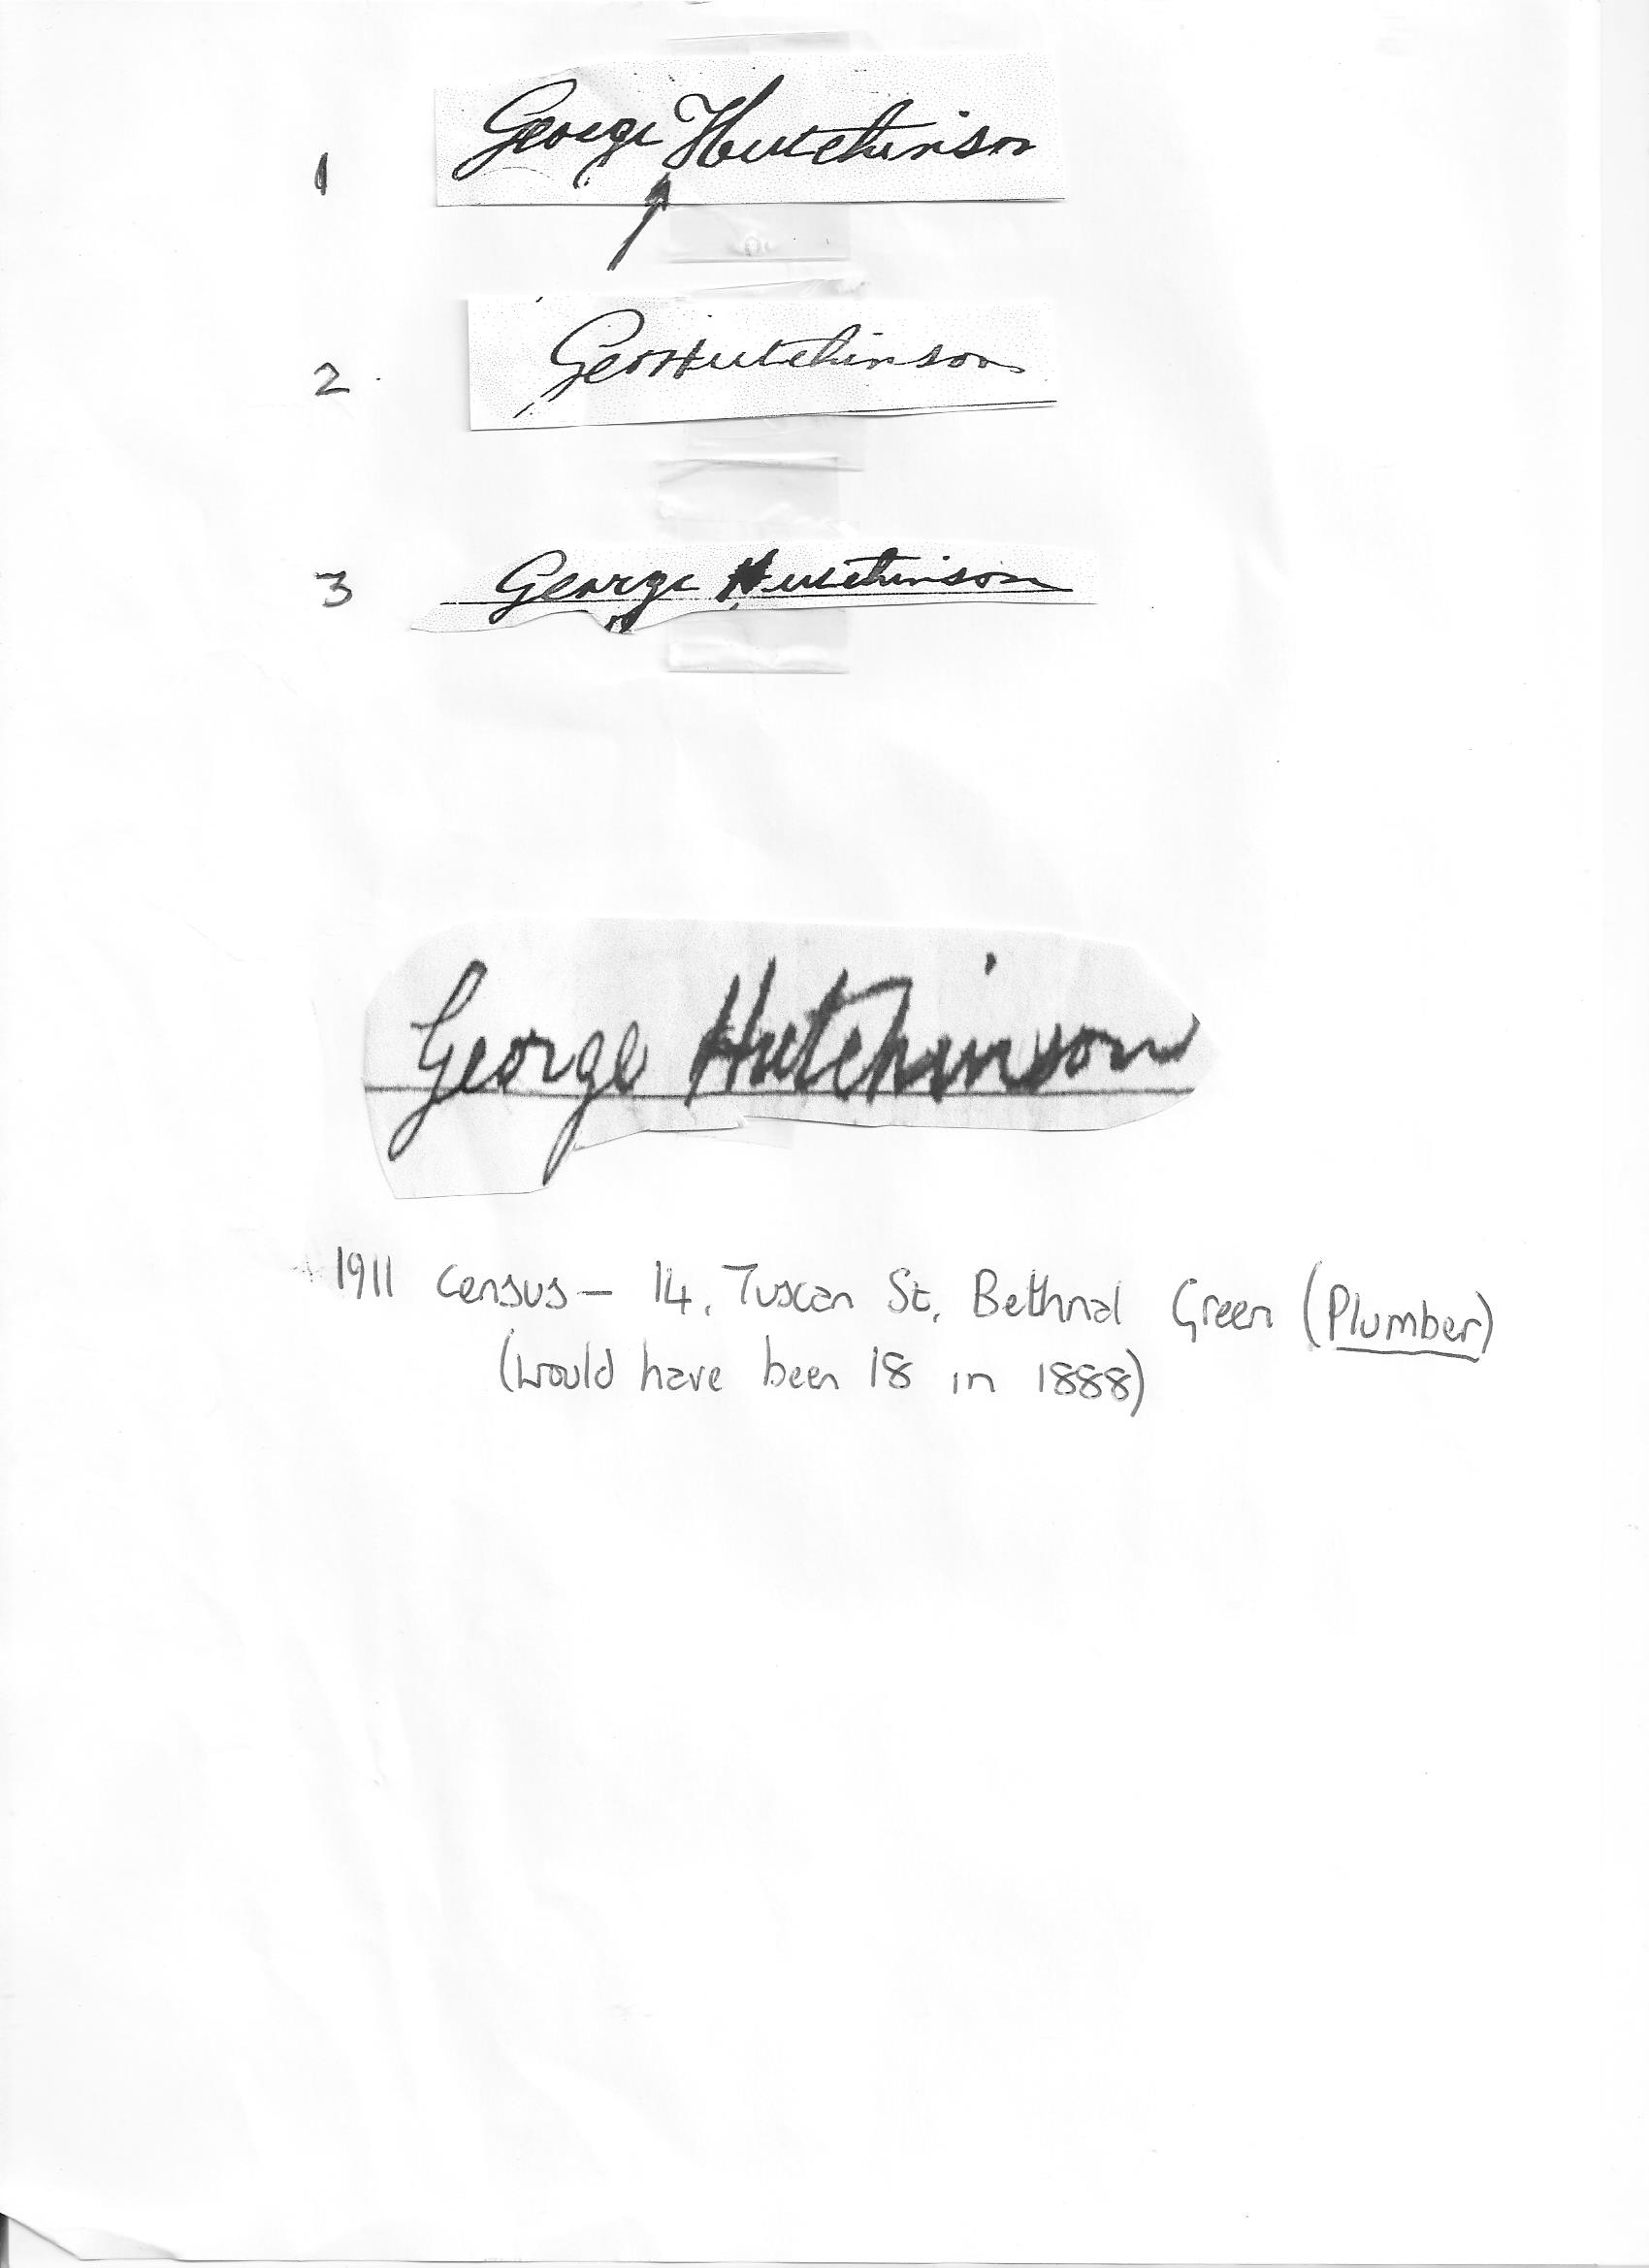 1 George Hutchinson
2. Geo Hutchinson
3 George Hutchinson
George Hutchinson
1911 Census - 14, Tuscan St, Bethnal Green (Plumber)
(would have been 18 in 1888)